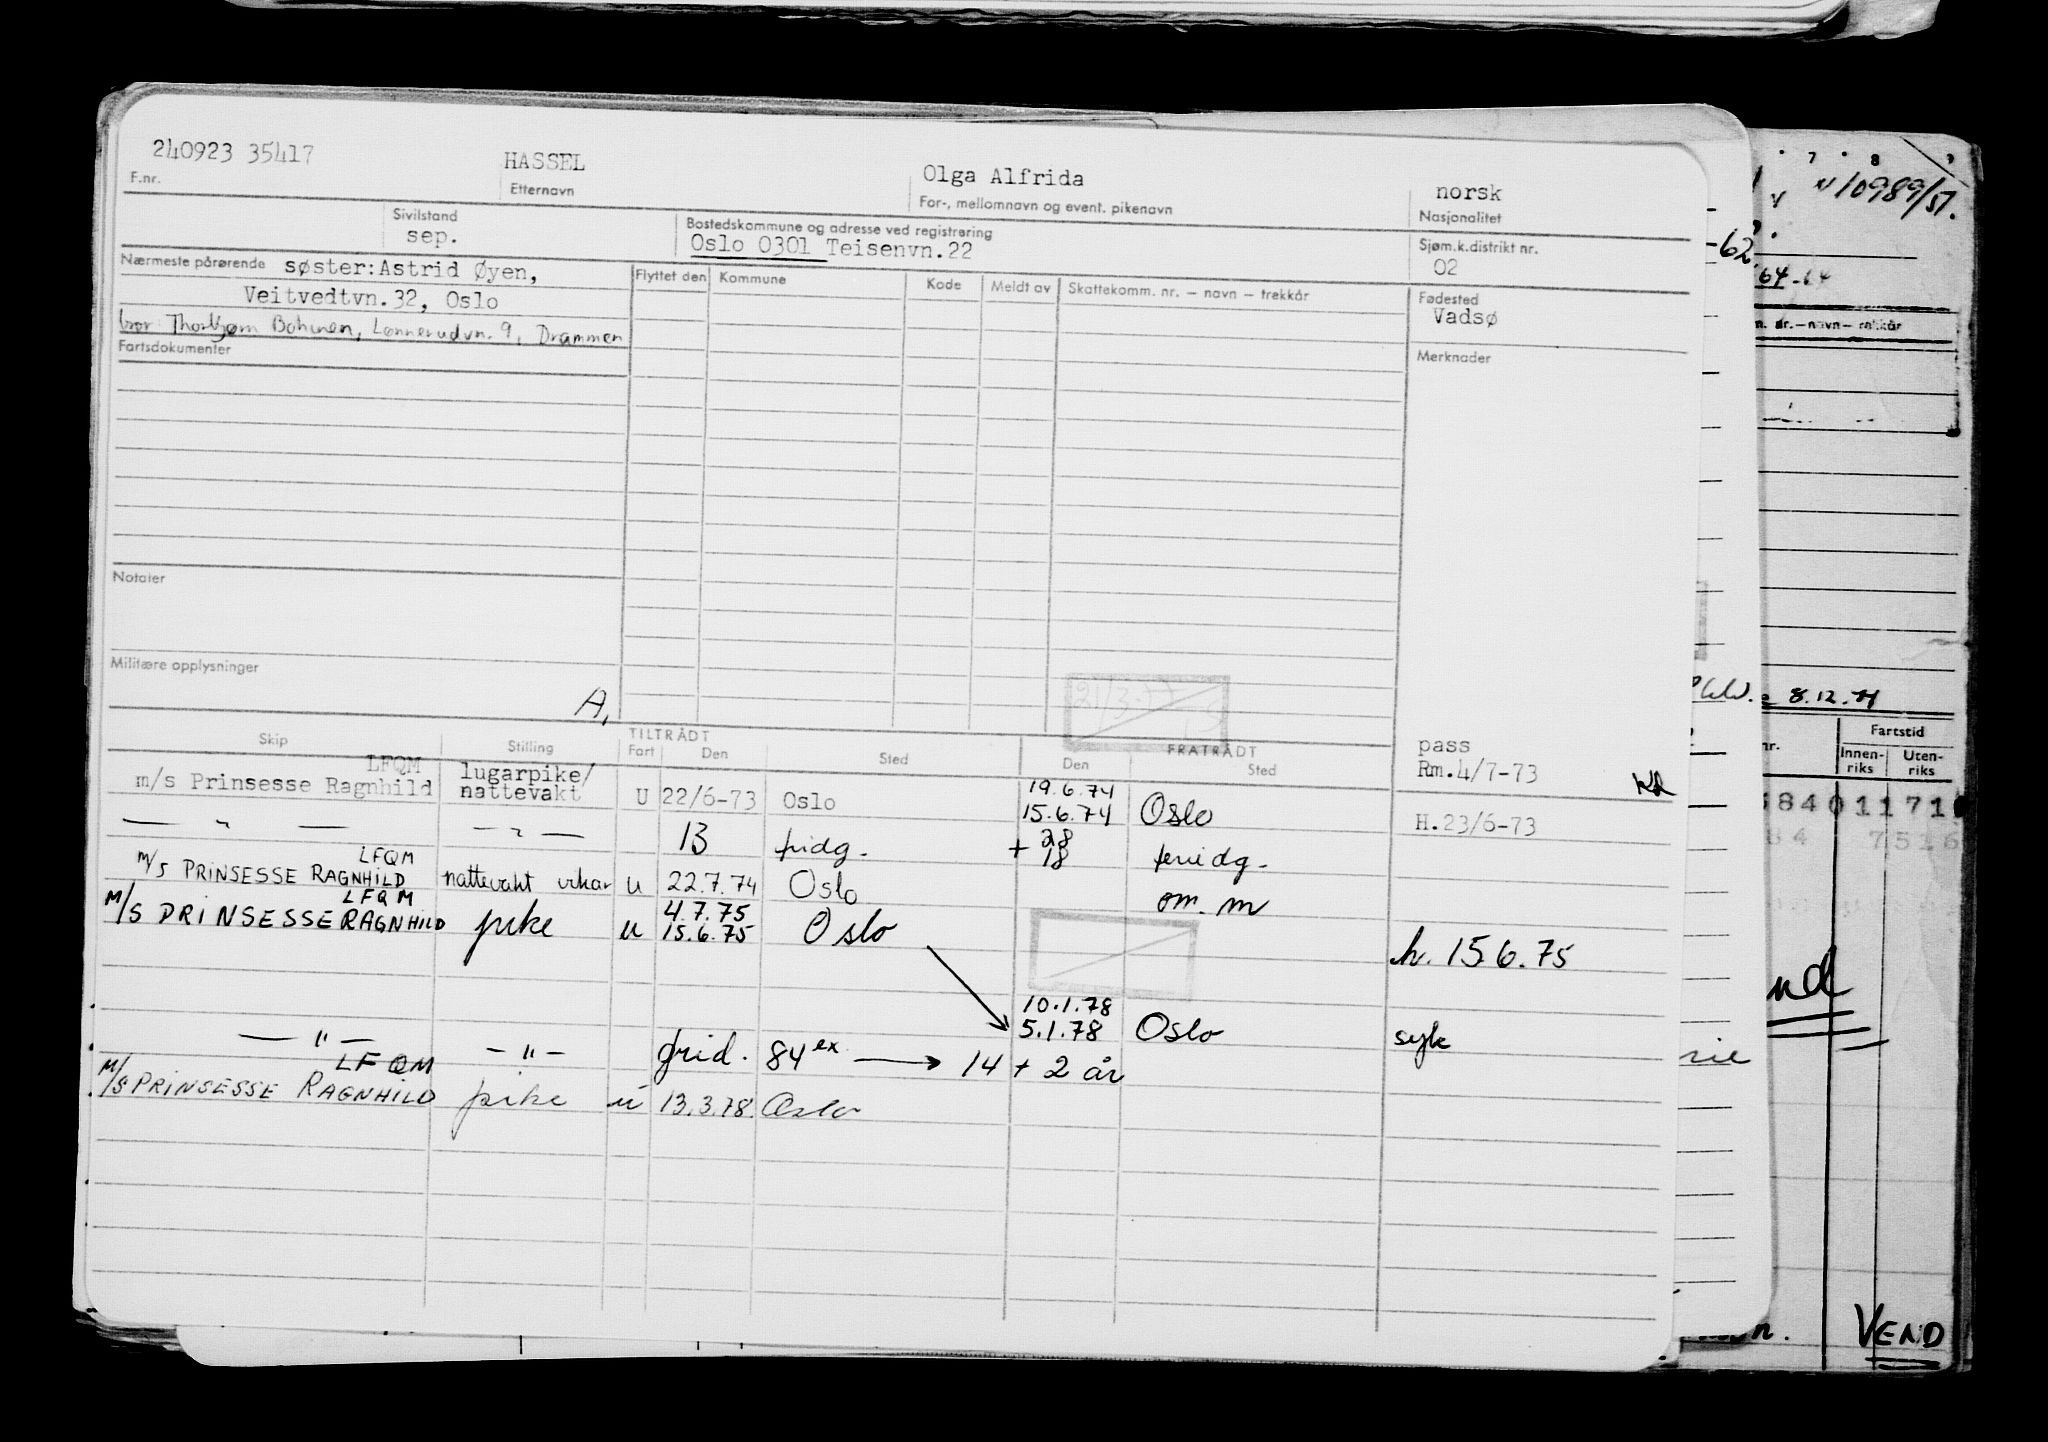 240923 35417 HASSEL Olga Alfrida norsk
F.nr. Etternavn For-, mellomnavn og event. pikenavn Nasjonalitet
Sivilstand Bostedskommune og adresse ved registrering Sjøm.k.distrikt nr.
sep. Oslo 0301 Teisenvn.22 02
Nærmeste pårørende søster:Astrid Øyen, Flyttet den Kommune Kode Meldt av Skattekomm. nr. — navn — trekkår Fødested
Veitvedtvn.32, Oslo Vadsø
bor Thorbjørn Bohinen, Lønnerudvn. 9, Drammen
Fartsdokumenter Merknader
Notater
Militære opplysninger
A.
21/3-77
Skip Stilling TILTRÅDT Fart Den Sted FRATRÅDT Den Sted
pass
LFQM lugarpike/ Rm.4/7-73
m/s Prinsesse Ragnhild nattevakt U 22/6-73 Oslo 19.6.74
15.6.74 Oslo H.23/6-73
— " — — " — 13 fridg. + 28
18 feriedg.
LFQM
m/s PRINSESSE RAGNHILD nattevakt vikar u 22.7.74 Oslo om. m
LFQM 4.7.75
M/S PRINSESSE RAGNHILD pike u 15.6.75 Oslo h. 15.6.75
10.1.78
5.1.78 Oslo syk
— " — — " — frid. 84 ex 14 + 2 år
LFQM
M/S PRINSESSE RAGNHILD pike u 13.3.78. Oslo
7 8 9
N10989/51.
-62
64-64
nr.—navn— rekkår
8.12.71
Fartstid
nr. Innen-riks Uten-riks
84011710
84 7516
VEND